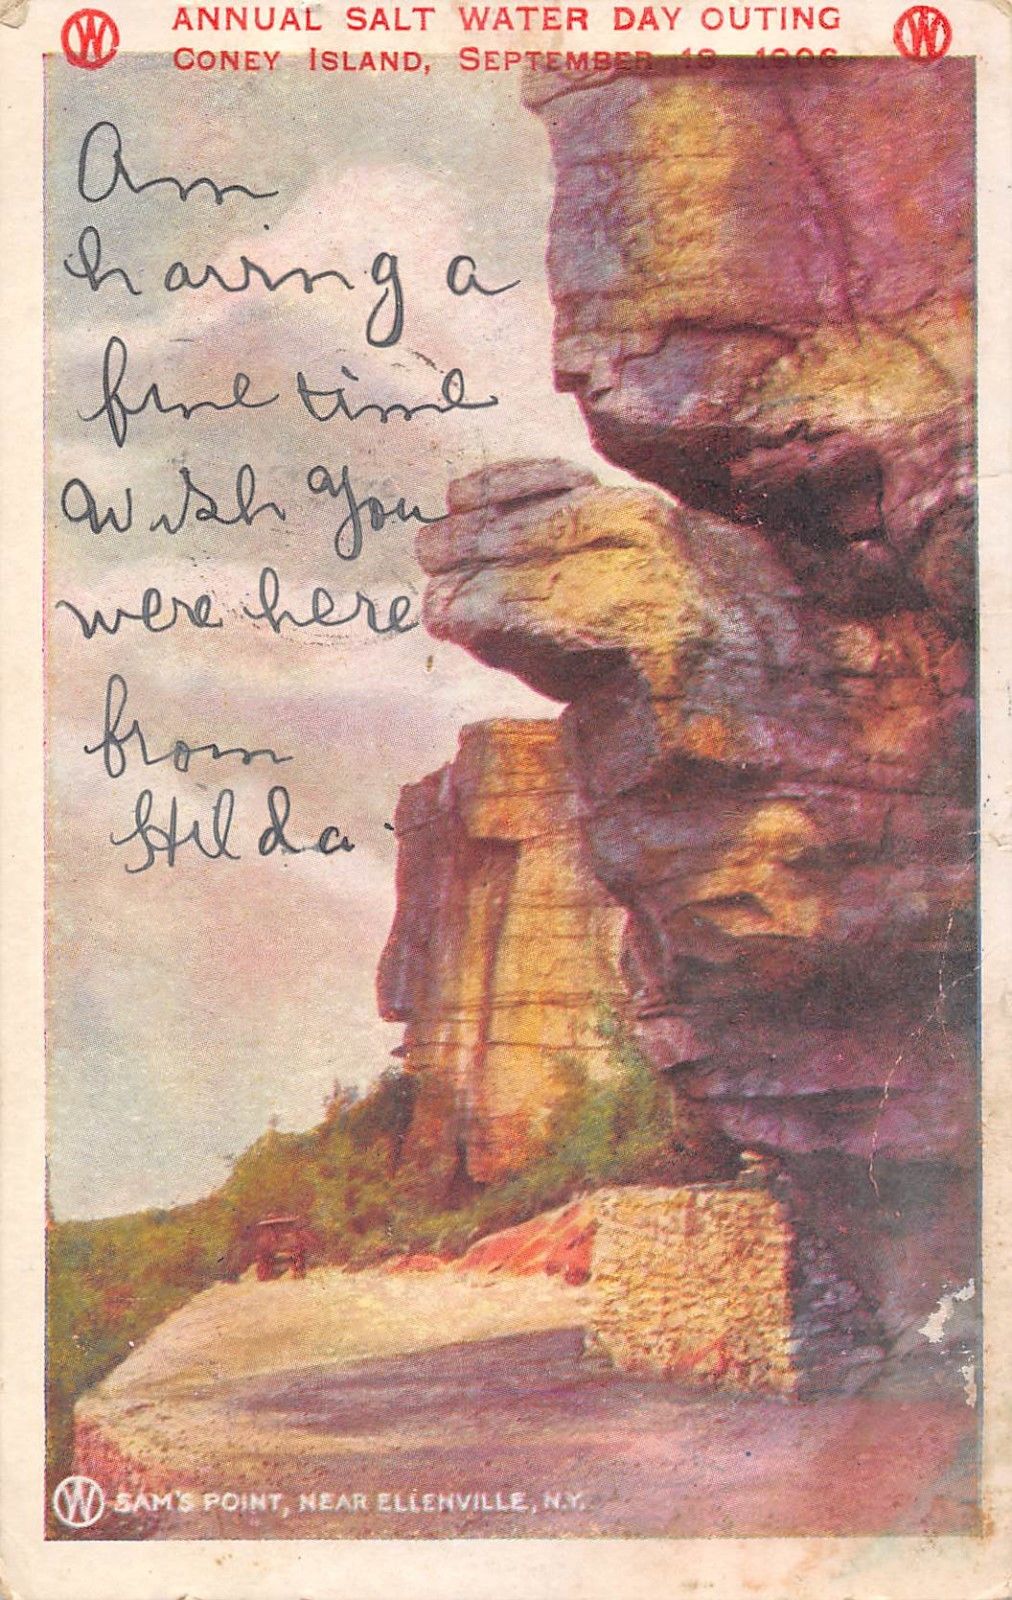 W ANNUAL SALT WATER DAY OUTING W
CONEY ISLAND, SEPTEMBER 13, 1906
Am
having a
fine time
wish you
were here
from
Hilda
W SAM'S POINT, NEAR ELLENVILLE, N.Y.